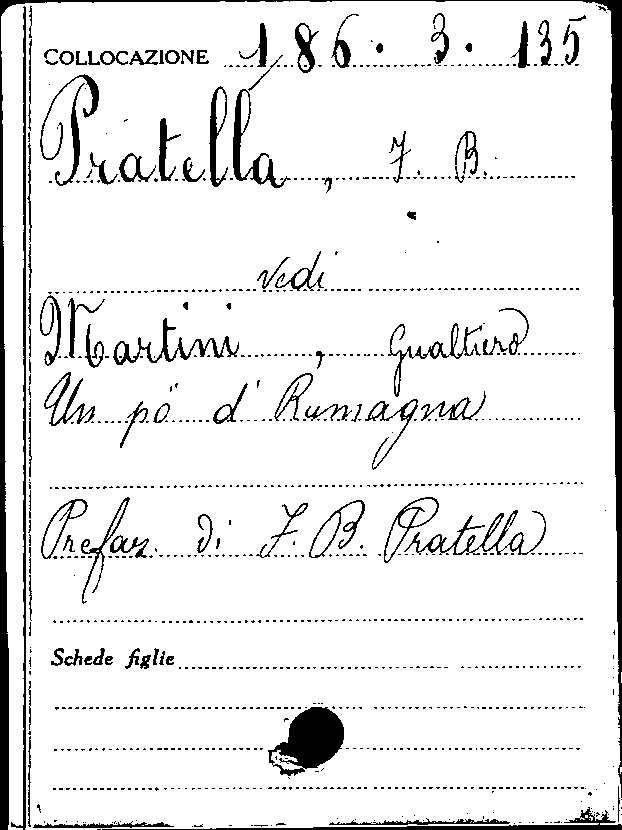 COLLOCAZIONE 186. 3. 135
Pratella, F. B.
vedi
Martini, Gualtiero
Un pö d' Rumagna
Prefaz. di F. B. Pratella
Schede figlie